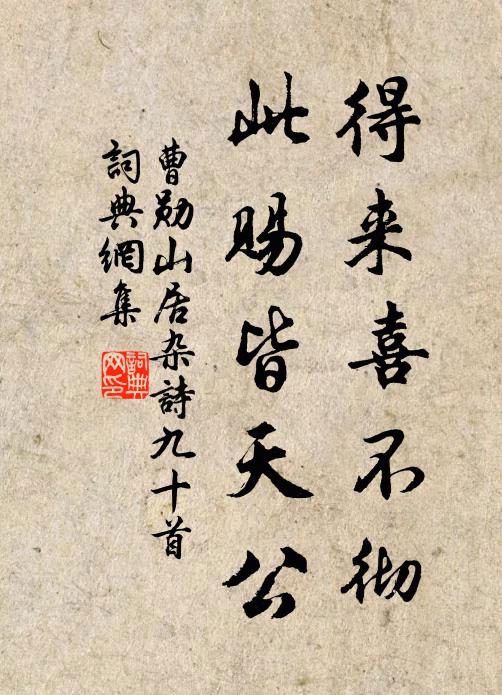 得来喜不彻
此賜皆天公
曹勛山居杂詩九十首
詞典網集
詞典網印